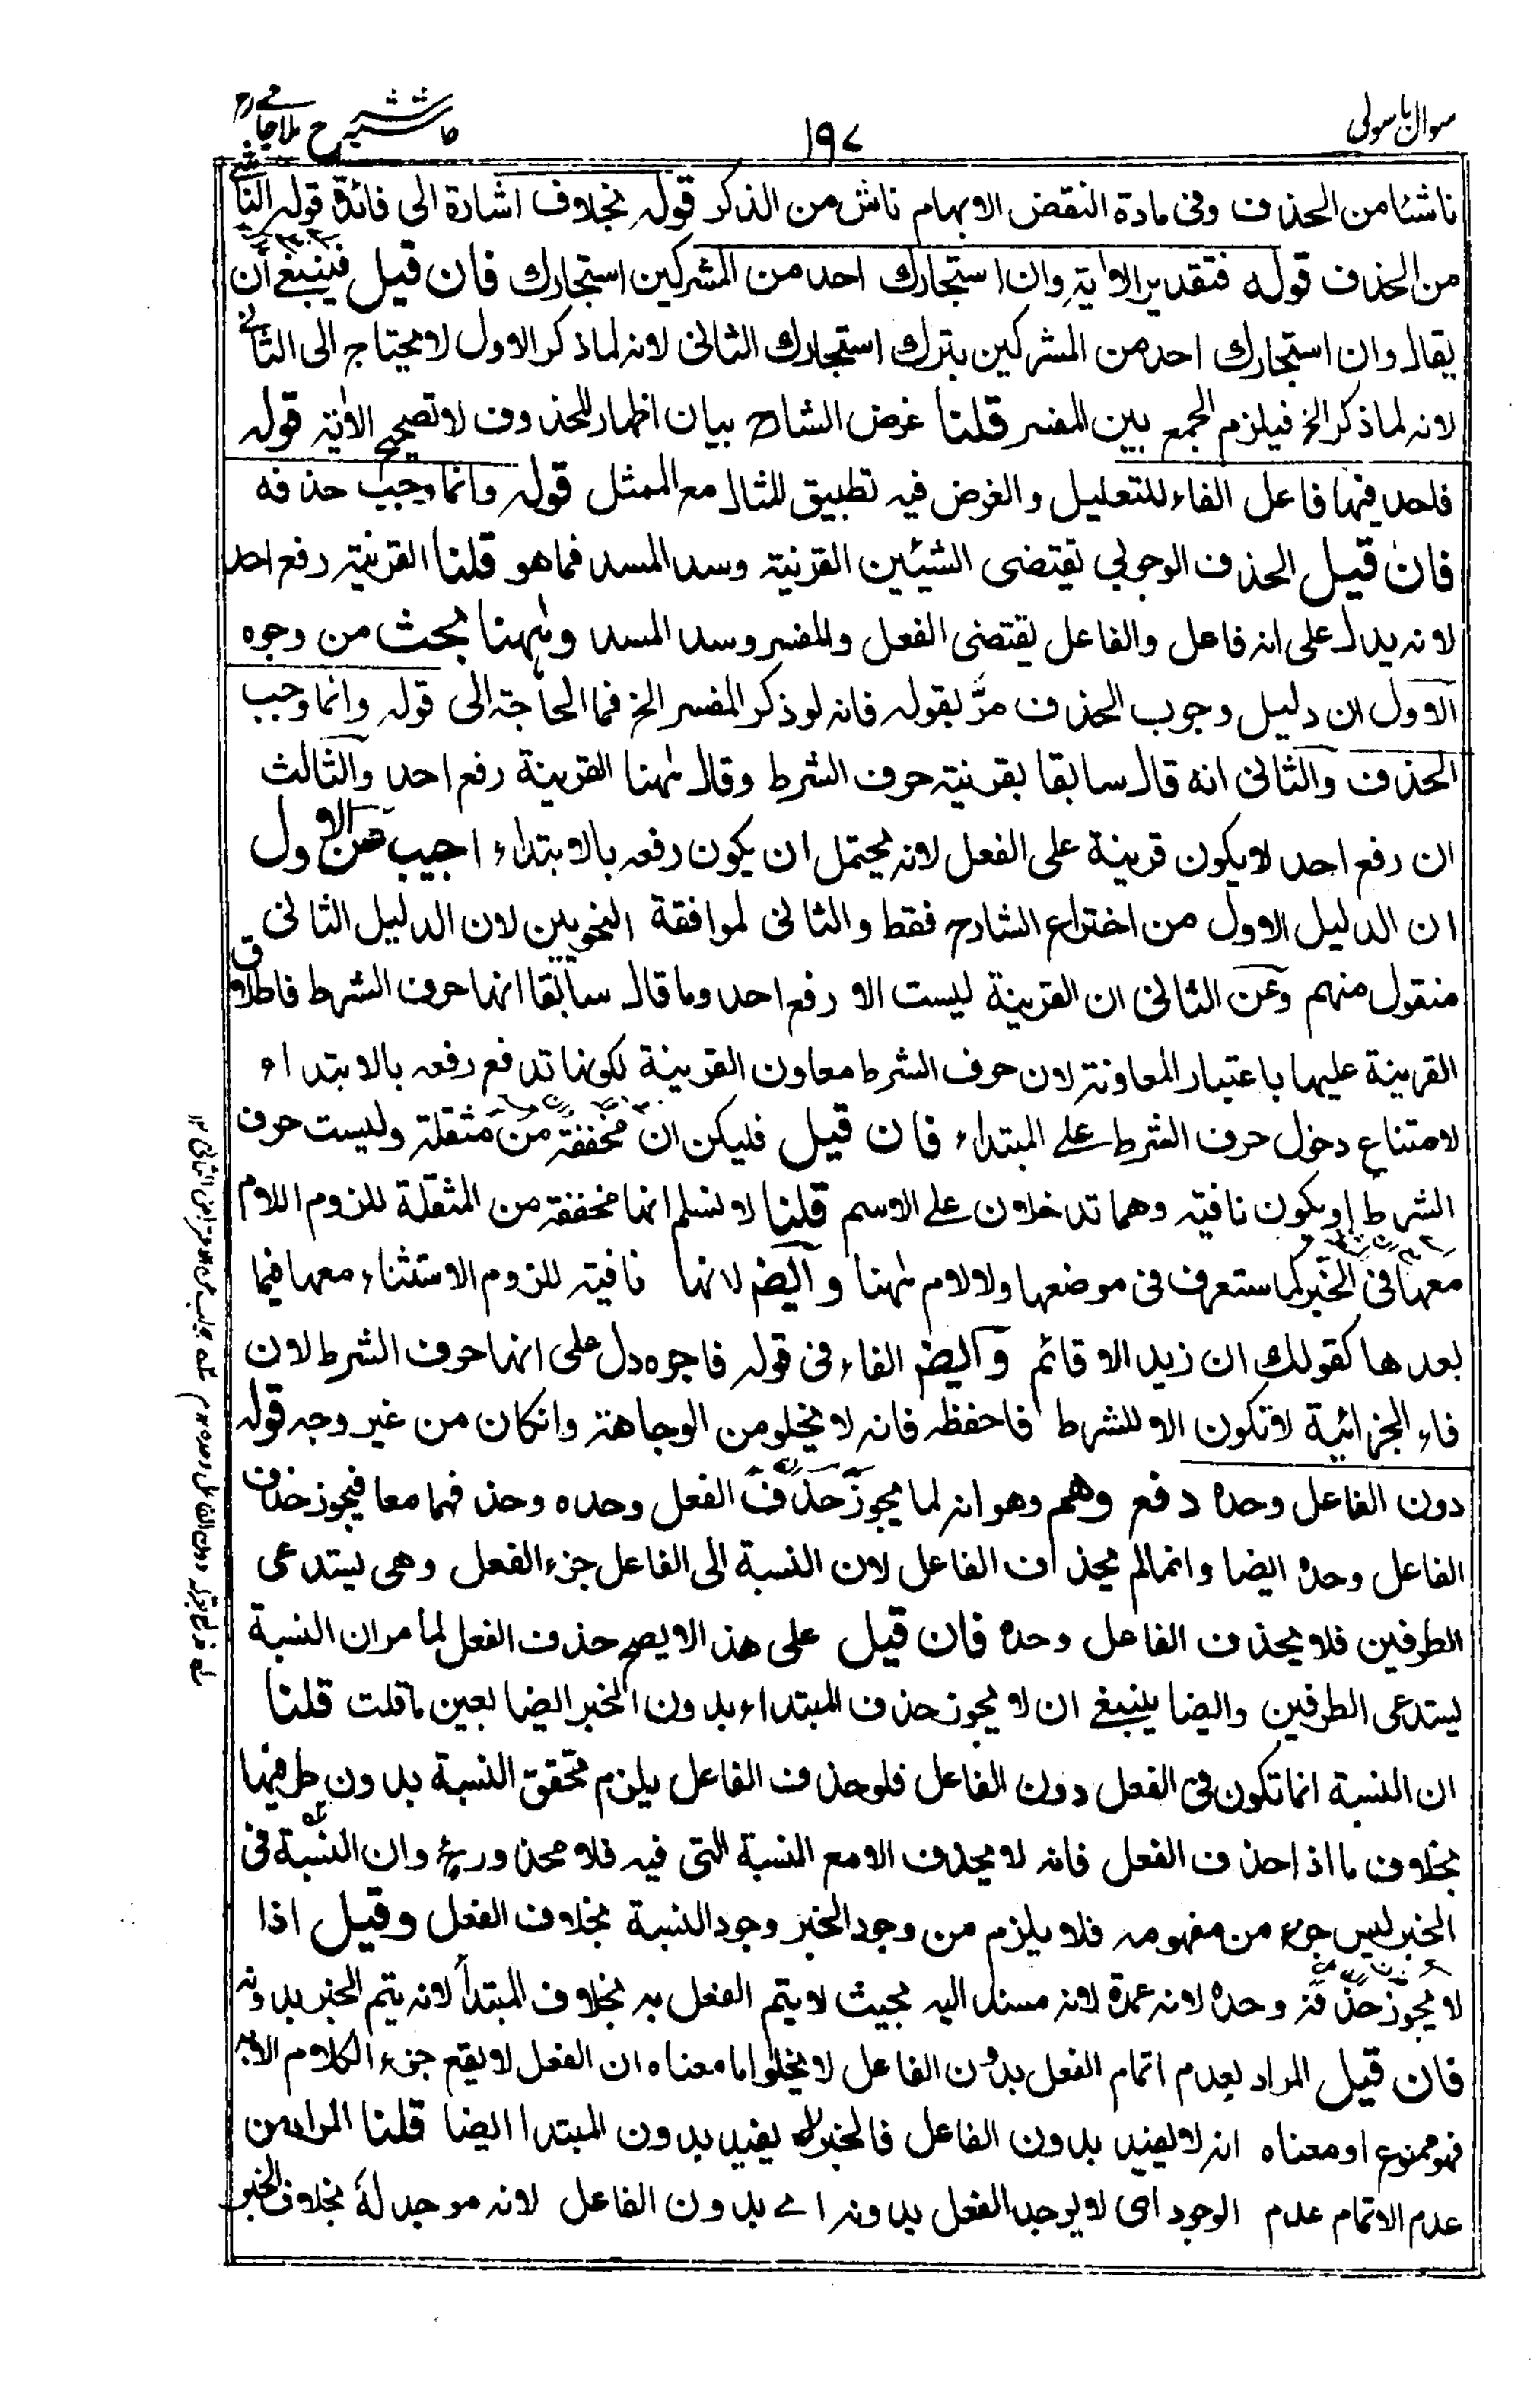 سوال باسولی
١٩٧
حاشیہ شرح ملا جامی رح
ناشئا من الحذف وفی مادة النقض الابهام ناش من الذکر قوله بخلاف اشارة الی فائدة قوله الناشی
من الحذف قوله فتقدیر الاٰیة وان استجارك احد من المشرکین استجارك فان قیل فینبغے ان
یقال وان استجارك احد من المشرکین بترك استجارك الثانی لانه لما ذکر الاول لا یحتاج الی الثانی
لانه لما ذکر الخ فیلزم الجمع بین المفسر قلنا غرض الشارح بیان اظهار المحذوف لا تصحیح الاٰیة قوله
فاحد فیها فاعل الفاء للتعلیل والغرض فیه تطبیق المثال مع الممثل قوله وانما وجب حذفه
فان قیل الحذف الوجوبی تقتضی الشیئین القرنیة وسد المسد فما هو قلنا القرنیة رفع احد
لانه یدل علی انه فاعل والفاعل یقتضی الفعل والمفسر وسد المسد وٰههنا بحث من وجوه
الاول ان دلیل وجوب الحذف مرّ بقوله فانه لو ذکر المفسر الخ فما الحاجة الی قوله وانما وجب
الحذف والثانی انه قال سابقا بقرنیة حرف الشرط وقال ٰههنا القرینة رفع احد والثالث
ان رفع احد لا یکون قرینة علی الفعل لانه یحتمل ان یکون رفعه بالابتداء اجیب عن الاول
ان الدلیل الاول من اختراع الشارح فقط والثانی لموافقة النحویین لان الدلیل الثانی
منقول منهم وعن الثانی ان القرینة لیست الا رفع احد وما قال سابقا انها حرف الشرط فاطلاق
القرینة علیها باعتبار المعاونة لان حرف الشرط معاون القرینة لکونها تدفع رفعه بالابتداء
لامتناع دخول حرف الشرط علے المبتداء فان قیل فلیکن ان مخففة من مثقلة ولیست حرف
الشرط او یکون نافیة وهما تدخلان علے الاسم قلنا لا نسلم انها مخففة من المثقلة للزوم اللام
معها فی الخبر کما ستعرف فی موضعها ولا لام ٰههنا وایضم لانها نافیة للزوم الاستثناء معها فیما
بعدها کقولك ان زید الا قائم وایضم الفاء فی قوله فاجره دل علی انها حرف الشرط لان
فاء الجزائیة لا تکون الا للشرط فاحفظه فانه لا یخلو من الوجاهة وانکان من غیر وجه قوله
دون الفاعل وحده دفع وهم وهو انه لما یجوز حذف الفعل وحده وحذفهما معا فیجوز حذف
الفاعل وحده ایضا وانما لم یحذف الفاعل لان النسبة الی الفاعل جزء الفعل وهی یستدعی
الطرفین فلا یحذف الفاعل وحده فان قیل علی هذا لا یصح حذف الفعل لما مر ان النسبة
یستدعی الطرفین وایضا ینبغے ان لا یجوز حذف المبتداء بدون الخبر ایضا بعین ما قلت قلنا
ان النسبة انما تکون فی الفعل دون الفاعل فلو حذف الفاعل یلزم تحقق النسبة بدون طرفیها
بخلاف ما اذا حذف الفعل فانه لا یحذف الا مع النسبة التی فیه فلا محذور وان النسبة فی
الخبر لیس جزء من مفهومه فلا یلزم من وجود الخبر وجود النسبة بخلاف الفعل وقیل اذا
لا یجوز حذفه وحده لانه عمدة لانه مسند الیه بحیث لا یتم الفعل به بخلاف المبتدأ لانه یتم الخبر بدونه
فان قیل المراد بعدم اتمام الفعل بدون الفاعل لا یخلو اما معناه ان الفعل لا یقع جزء الکلام الا به
فهو ممنوع او معناه انه لا یفید بدون الفاعل فالخبر لا یفید بدون المبتدا ایضا قلنا المراد من
عدم الاتمام عدم الوجود ای لا یوجد الفعل بدونه اے بدون الفاعل لانه موجد لهٗ بخلاف الخبر